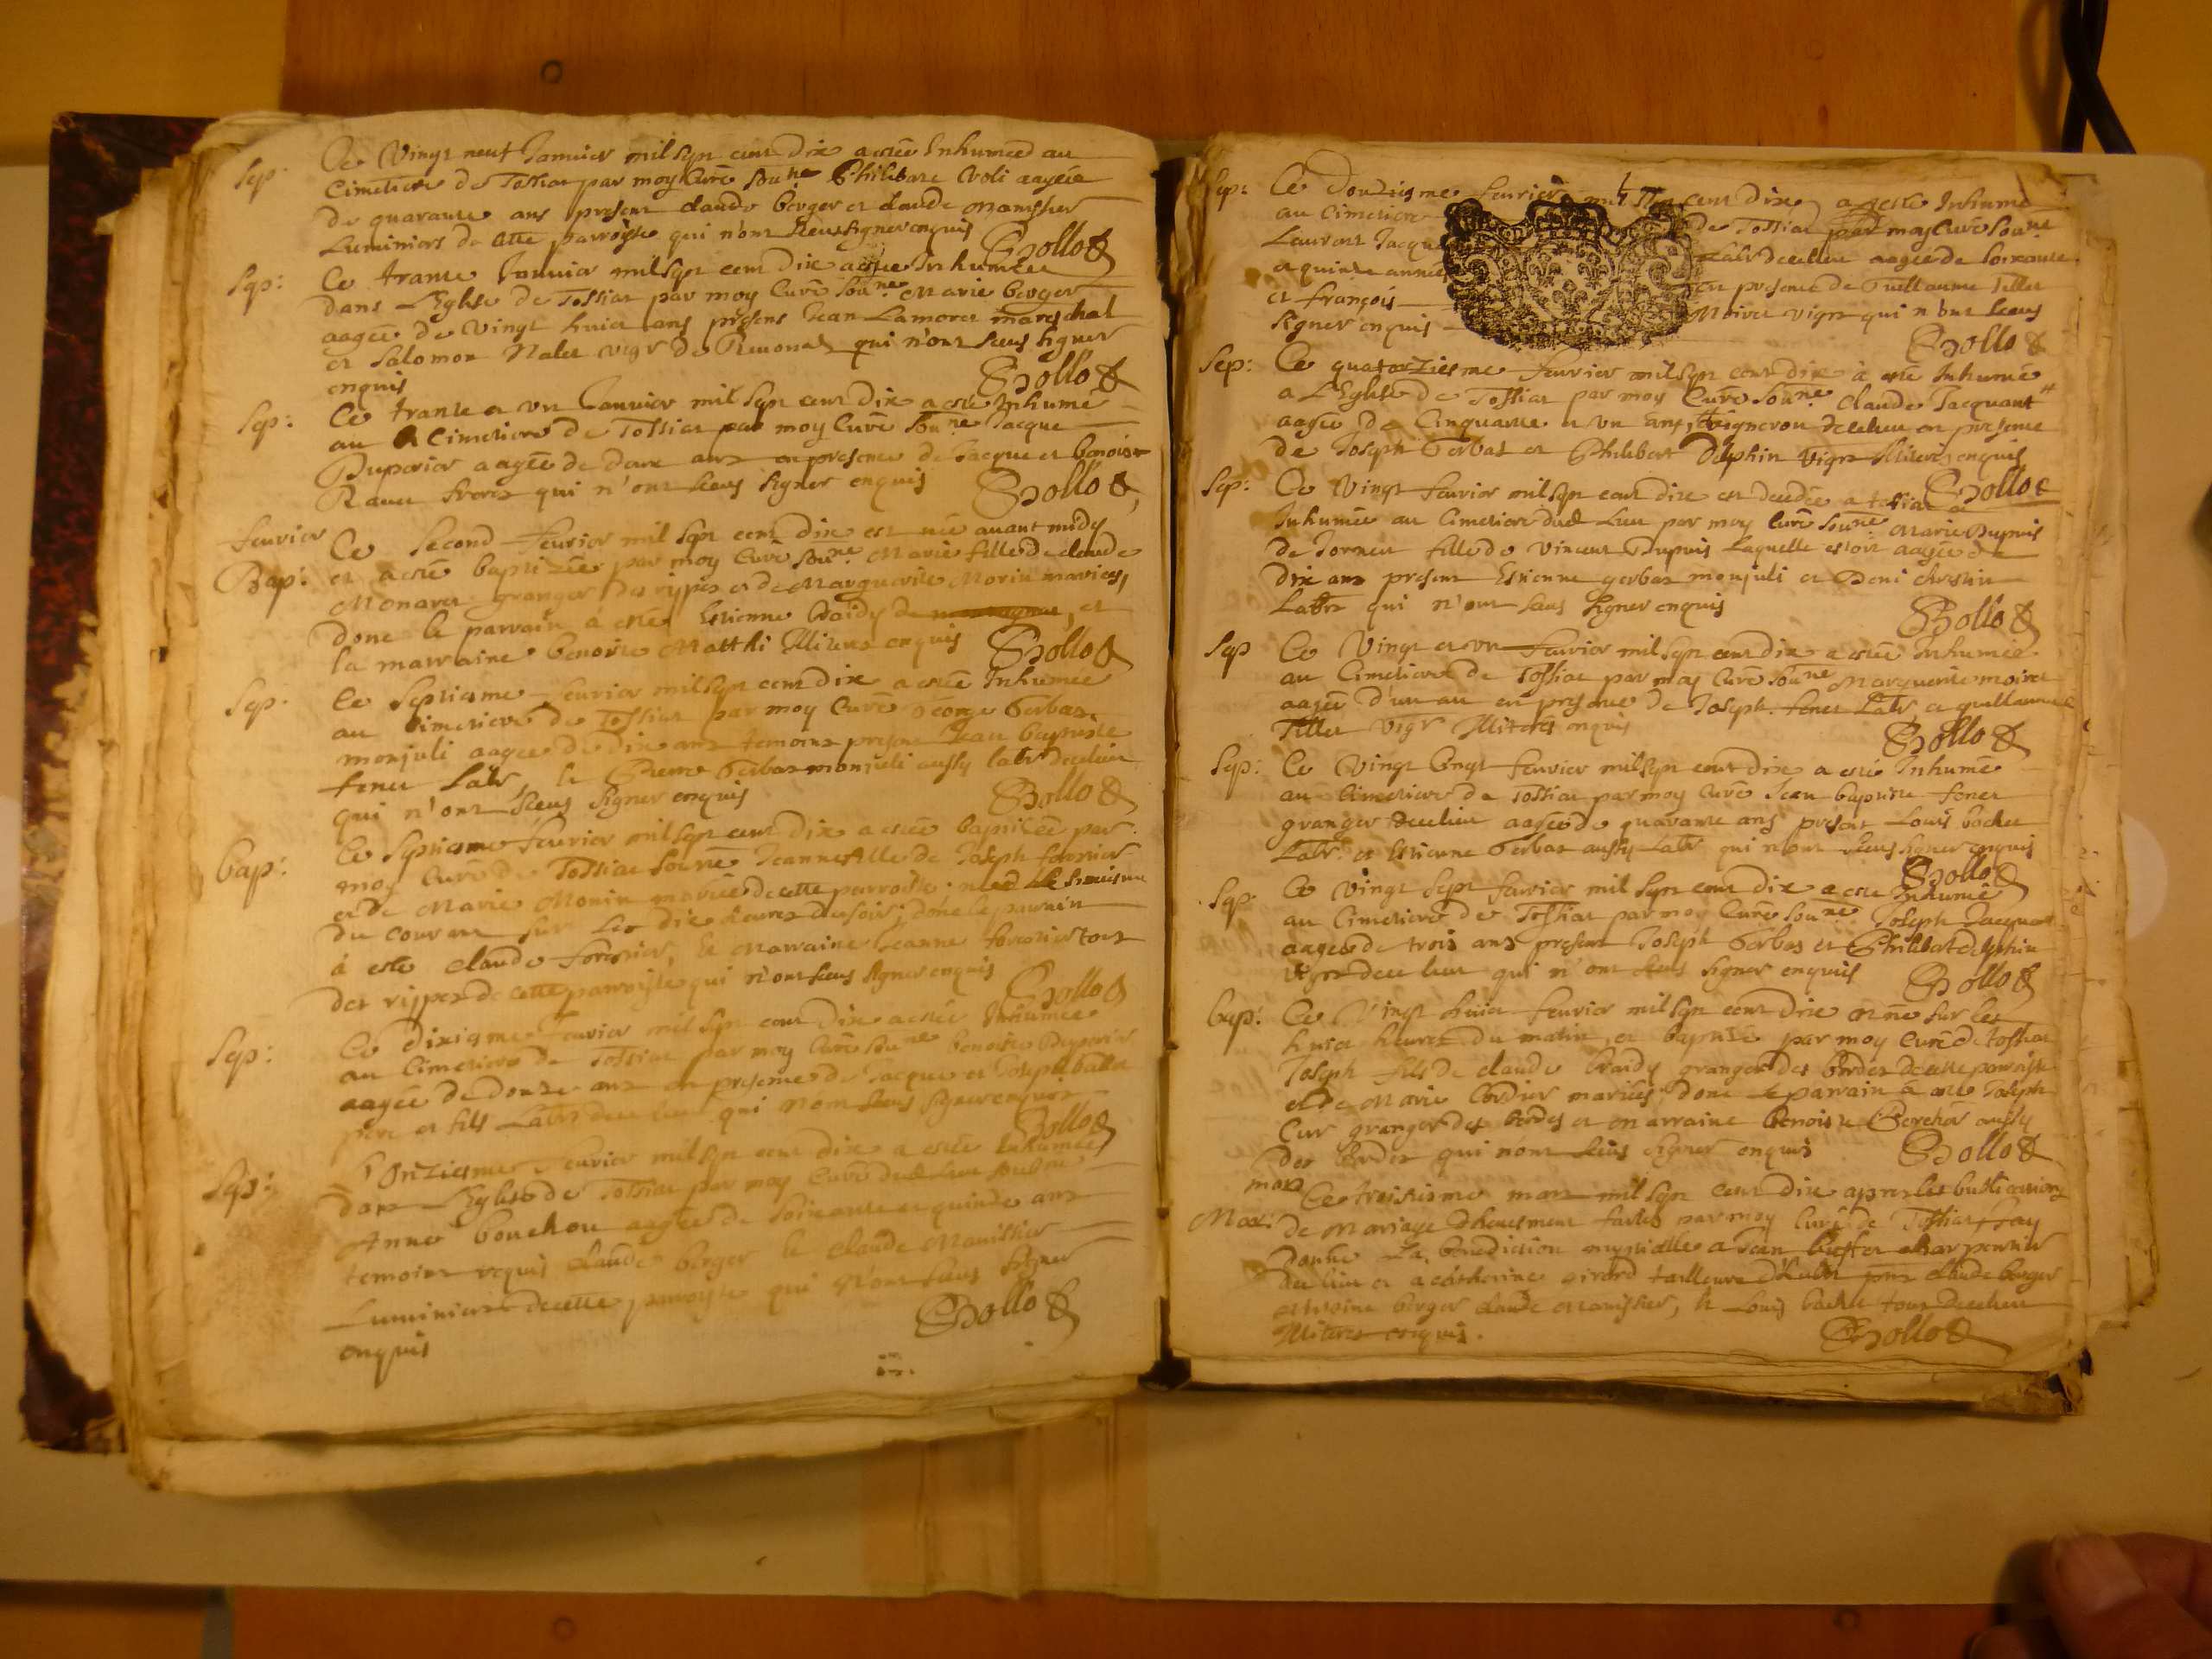 Sep: Ce Vingt neuf Januier mil Sept cent dix a esté Inhumée au
Cimetiere de Tossiat par moy Curé Sou.ne Philiberte Voli aagée
de quarante ans present claude berger et claude
Luminiers de cette parroisse qui n'ont sceus signer enquis Bollo
Sep: Ce trante Januier mil Sept cent dix a esté Inhumée
dans L'Eglise de Tossiat par moy Curé Sou.ne Marie berger
aagée de Vingt huict ans presens Jean Lamores mareschal
et Salomon Nalet vigr de qui n'ont sceus signer
enquis Bollo
Sep: Ce trante et vn Januier mil Sept cent dix a esté Inhumé
au Cimetiere de Tossiat par moy Curé Sou.ne Jacque
Duperier aagée de deux ans en presence de Jacque et benoist
Rauet freres qui n'ont sceus signer enquis Bollo
feurier
Bap: Ce Second feurier mil Sept cent dix est née auant midy
et a esté baptizée par moy Curé Sou.ne Marie fille de claude
Monaret granger des rippes et de Marguerite Morin mariés,
donc le parrain à esté Estienne braidy de et
la marraine benoiste Matthi Illiteres enquis Bollo
Sep: Ce Septiesme feurier mil Sept cent dix a estée Inhumée
au Cimetiere de Tossiat par moy Curé George Gerbas
monjuli aagée de dix ans temoins presens Jean baptiste
fenet Labr, & Pierre Gerbas monjuli aussy labr decelieu
qui n'ont sceus signer enquis Bollo
bap: Ce Septiesme feurier mil Sept cent dix a estée baptisée par
moy Curé de Tossiat Sou.né Jeanne fille de Joseph forestier
et de Marie Monin mariés de cette parroisse née le sixiesme
du courant sur Les dix heures du soir; donc le parrain
à esté claude forestier, & Marraine Jeanne forestier tous
des rippes de cette parroisse qui n'ont sceus signer enquis Bollo
Sep: Ce dixiesme feurier mil Sept cent dix a estée Inhumée
au Cimetiere de Tossiat par moy Curé Sou.ne benoiste Duperier
aagée de douze ans en presence de Jacque et Joseph
pere et fils Labrs decelieu qui n'ont sceus signer enquis
Bollo
Sep: L'Onziesme feurier mil Sept cent dix a estée Inhumée
dans L'Eglise de Tossiat par moy Curé dud lieu
Anne bouchou aagée de soixante et quinze ans
temoins requis claude berger & claude
Luminiers de cette parroisse qui n'ont sceus signer
enquis Bollo
Sep: Ce douziesme feurier mil Sept cent dix a esté Inhumé
au Cimetiere de Tossiat par moy Curé Sou.ne
Laurent Jacqu Labr decelieu aagée de soixante
et quinze années en presence de Guillaume Tillet
et françois Moiret vigrs qui n'ont sceus
signer enquis Bollo
Sep: Ce quatorziesme feurier mil Sept cent dix à esté Inhumé
a L'Eglise de Tossiat par moy Curé Sou.ne Claude Jacquant
aagée de Cinquante et vn ans, vigneron decelieu en presence
de Joseph Gerbas et Philibert Delphin vigrs Illiteres enquis
Bollo
Sep: Ce Vingt feurier mil Sept cent dix est decedée a Tossiat et
Inhumée au Cimetiere dud Lieu par moy Curé Sou.ne Marie Dupuis
de Jorneu fille de Vincent Dupuis Laquelle estoit aagée de
dix ans present Estienne gerbas monjuli et Deni chrestin
Labrs qui n'ont sceus signer enquis Bollo
Sep Ce Vingt et vn feurier mil Sept cent dix a estée Inhumée
au Cimetiere de Tossiat par moy Curé Sou.ne Marguerite moiret
aagée d'un an en presence de Joseph fenet Labr, et guillaume
Tillet Vigr Illiteres enquis Bollo
Sep: Ce Vingt Cinqt feurier mil Sept cent dix a esté Inhumé
au Cimetiere de Tossiat par moy Curé Jean baptiste fenet
granger decelieu aagée de quarante ans present Louis bochet
Labr. et Estienne Gerbas aussy Labr qui n'ont sceus signer enquis
Bollo
Sep: Ce Vingt Sept feurier mil Sept cent dix a esté Inhumé
au Cimetiere de Tossiat par moy Curé Sou.ne Joseph Jacquet
aagée de trois ans present Joseph Gerbas et Philibert Delphin
vigrs decelieu qui n'ont sceus signer enquis Bollo
bap: Ce Vingt huict feurier mil Sept cent dix est né sur les
huict heures du matin, et baptizé par moy Curé de Tossiat
Joseph fils de claude braidy granger des bordes de cette parroisse
et de Marie Cordier mariés; donc le parrain à esté Joseph
Cur granger des bordes et marraine benoiste Perchér aussy
des bordes qui n'ont sceus signer enquis Bollo
mars
Mar: Ce troisiesme mars mil Sept cent dix apres les publications
de Mariage dheuement faites par moy Curé de Tossiat J'ay
donné La benediction nuptialle a Jean charpentier
decelieu et a catherine girard tailleuse d'habit pnts claude berger
Antoine berger claude & Louis bochet tous decelieu
Illiteres enquis. Bollo